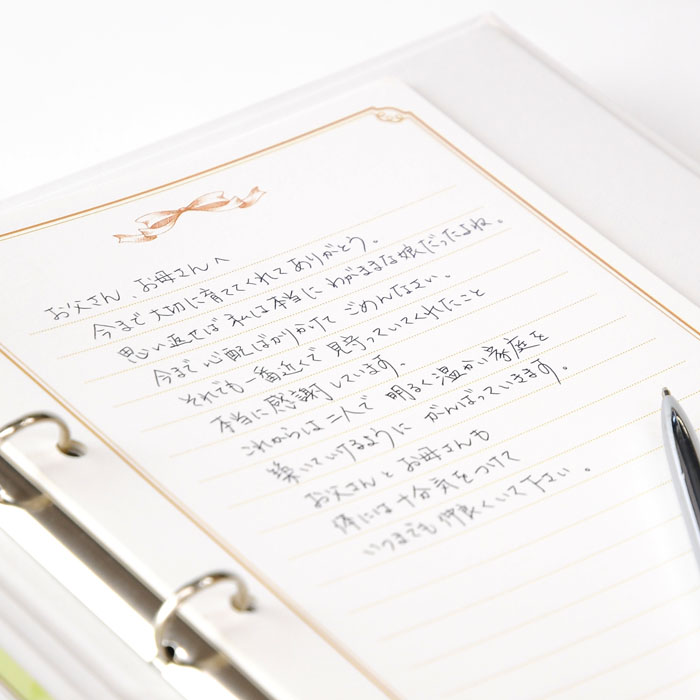 お父さん、お母さんへ
今まで大切に育ててくれてありがとう。
思い返せば私は本当にわがままな娘だったよね。
今まで心配ばかりかけてごめんなさい。
それでも一番近くで見守っていてくれたこと
本当に感謝しています。
これからは二人で明るく温かい家庭を
築いていけるようにがんばっていきます。
お父さんとお母さんも
体には十分気をつけて
いつまでも仲良くいて下さい。